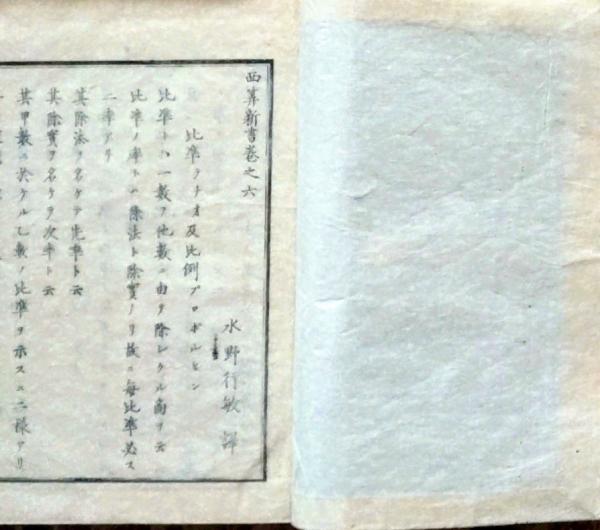 西算新書巻之六
水野行敏 譯
比準ラチオ及比例プロポルション
比準トハ一数ヲ他数ニ由テ除シタル商ヲ云
比準ノ率トハ除法ト除實ノリ故ニ毎比準必ス
二率アリ
其除法ヲ名ケテ先率ト云
其除實ヲ名ケテ次率ト云
其甲数ニ於ケル乙数ノ比準ヲ示スニ二様アリ